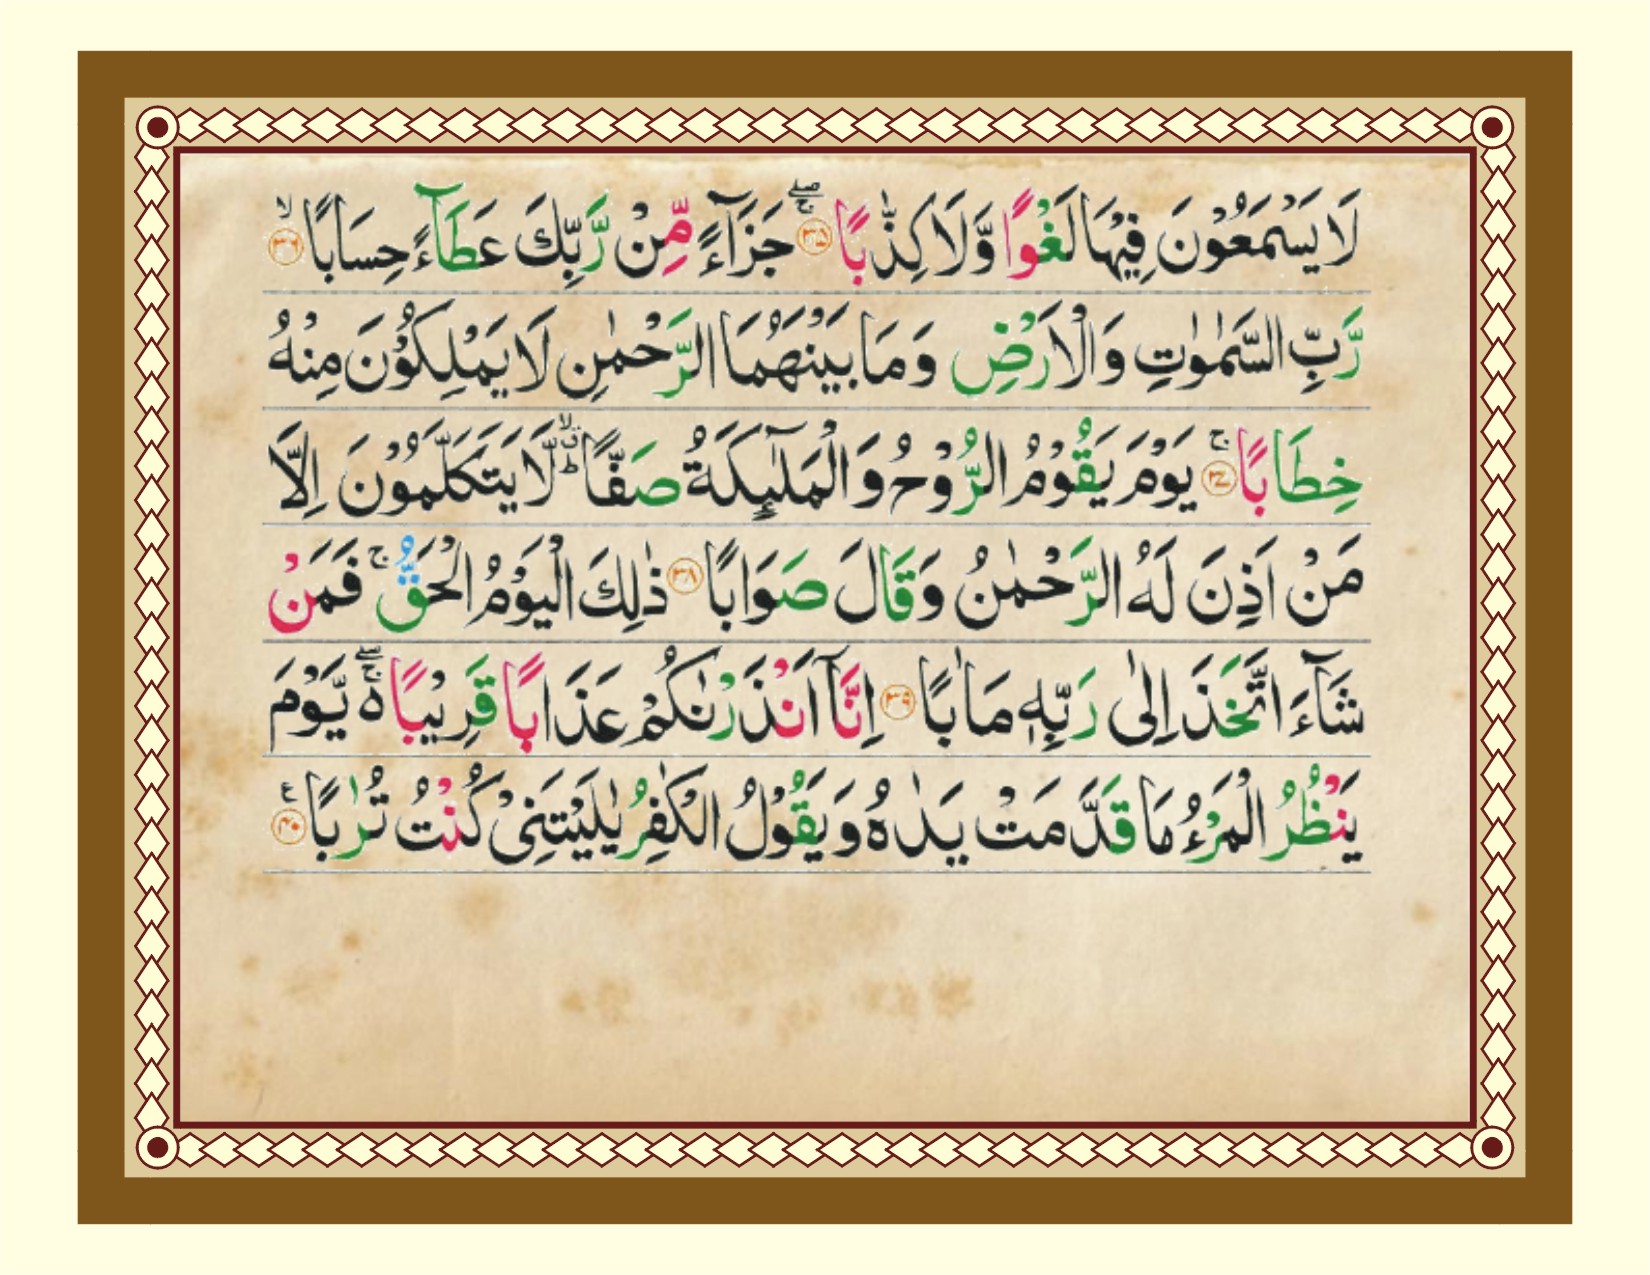 لَا يَسۡمَعُوۡنَ فِيۡهَا لَغۡوًا وَّلَا كِذّٰبًا ۚۖ‏ ﴿۳۵﴾ جَزَآءً مِّنۡ رَّبِّكَ عَطَآءً حِسَابًا ۙ‏ ﴿۳۶﴾
رَّبِّ السَّمٰوٰتِ وَالۡاَرۡضِ وَمَا بَيۡنَهُمَا الرَّحۡمٰنِ لَا يَمۡلِكُوۡنَ مِنۡهُ
خِطَابًا ۚ‏ ﴿۳۷﴾ يَوۡمَ يَقُوۡمُ الرُّوۡحُ وَالۡمَلٰٓٮِٕكَةُ صَفًّا ؕۙ لَّا يَتَكَلَّمُوۡنَ اِلَّا
مَنۡ اَذِنَ لَهُ الرَّحۡمٰنُ وَقَالَ صَوَابًا‏ ﴿۳۸﴾ ذٰلِكَ الۡيَوۡمُ الۡحَقُّ​ ۚ فَمَنۡ
شَآءَ اتَّخَذَ اِلٰى رَبِّهٖ مَاٰبًا‏ ﴿۳۹﴾ اِنَّاۤ اَنۡذَرۡنٰكُمۡ عَذَابًا قَرِيۡبًا ۖۚ ۵ يَّوۡمَ
يَنۡظُرُ الۡمَرۡءُ مَا قَدَّمَتۡ يَدٰهُ وَيَقُوۡلُ الۡكٰفِرُ يٰلَيۡتَنِىۡ كُنۡتُ تُرٰبًا ﴿۴۰﴾ ع